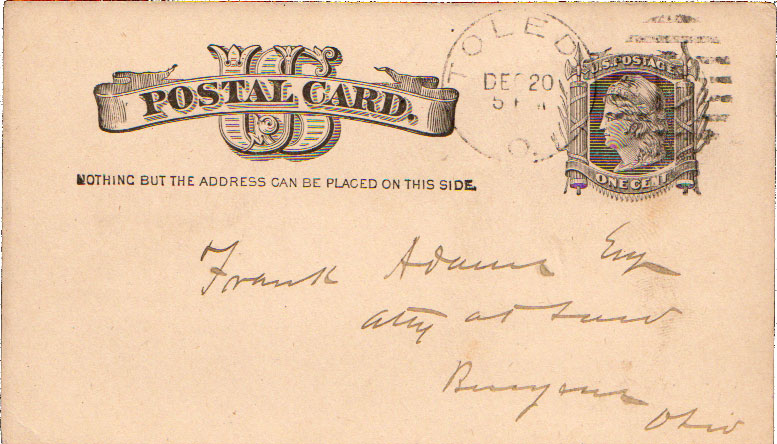 US
POSTAL CARD.
NOTHING BUT THE ADDRESS CAN BE PLACED ON THIS SIDE.
TOLEDO
DEC 20
5 PM
O.
U.S. POSTAGE
ONE CENT
Frank Adams Esq
atty at Law
Ohio